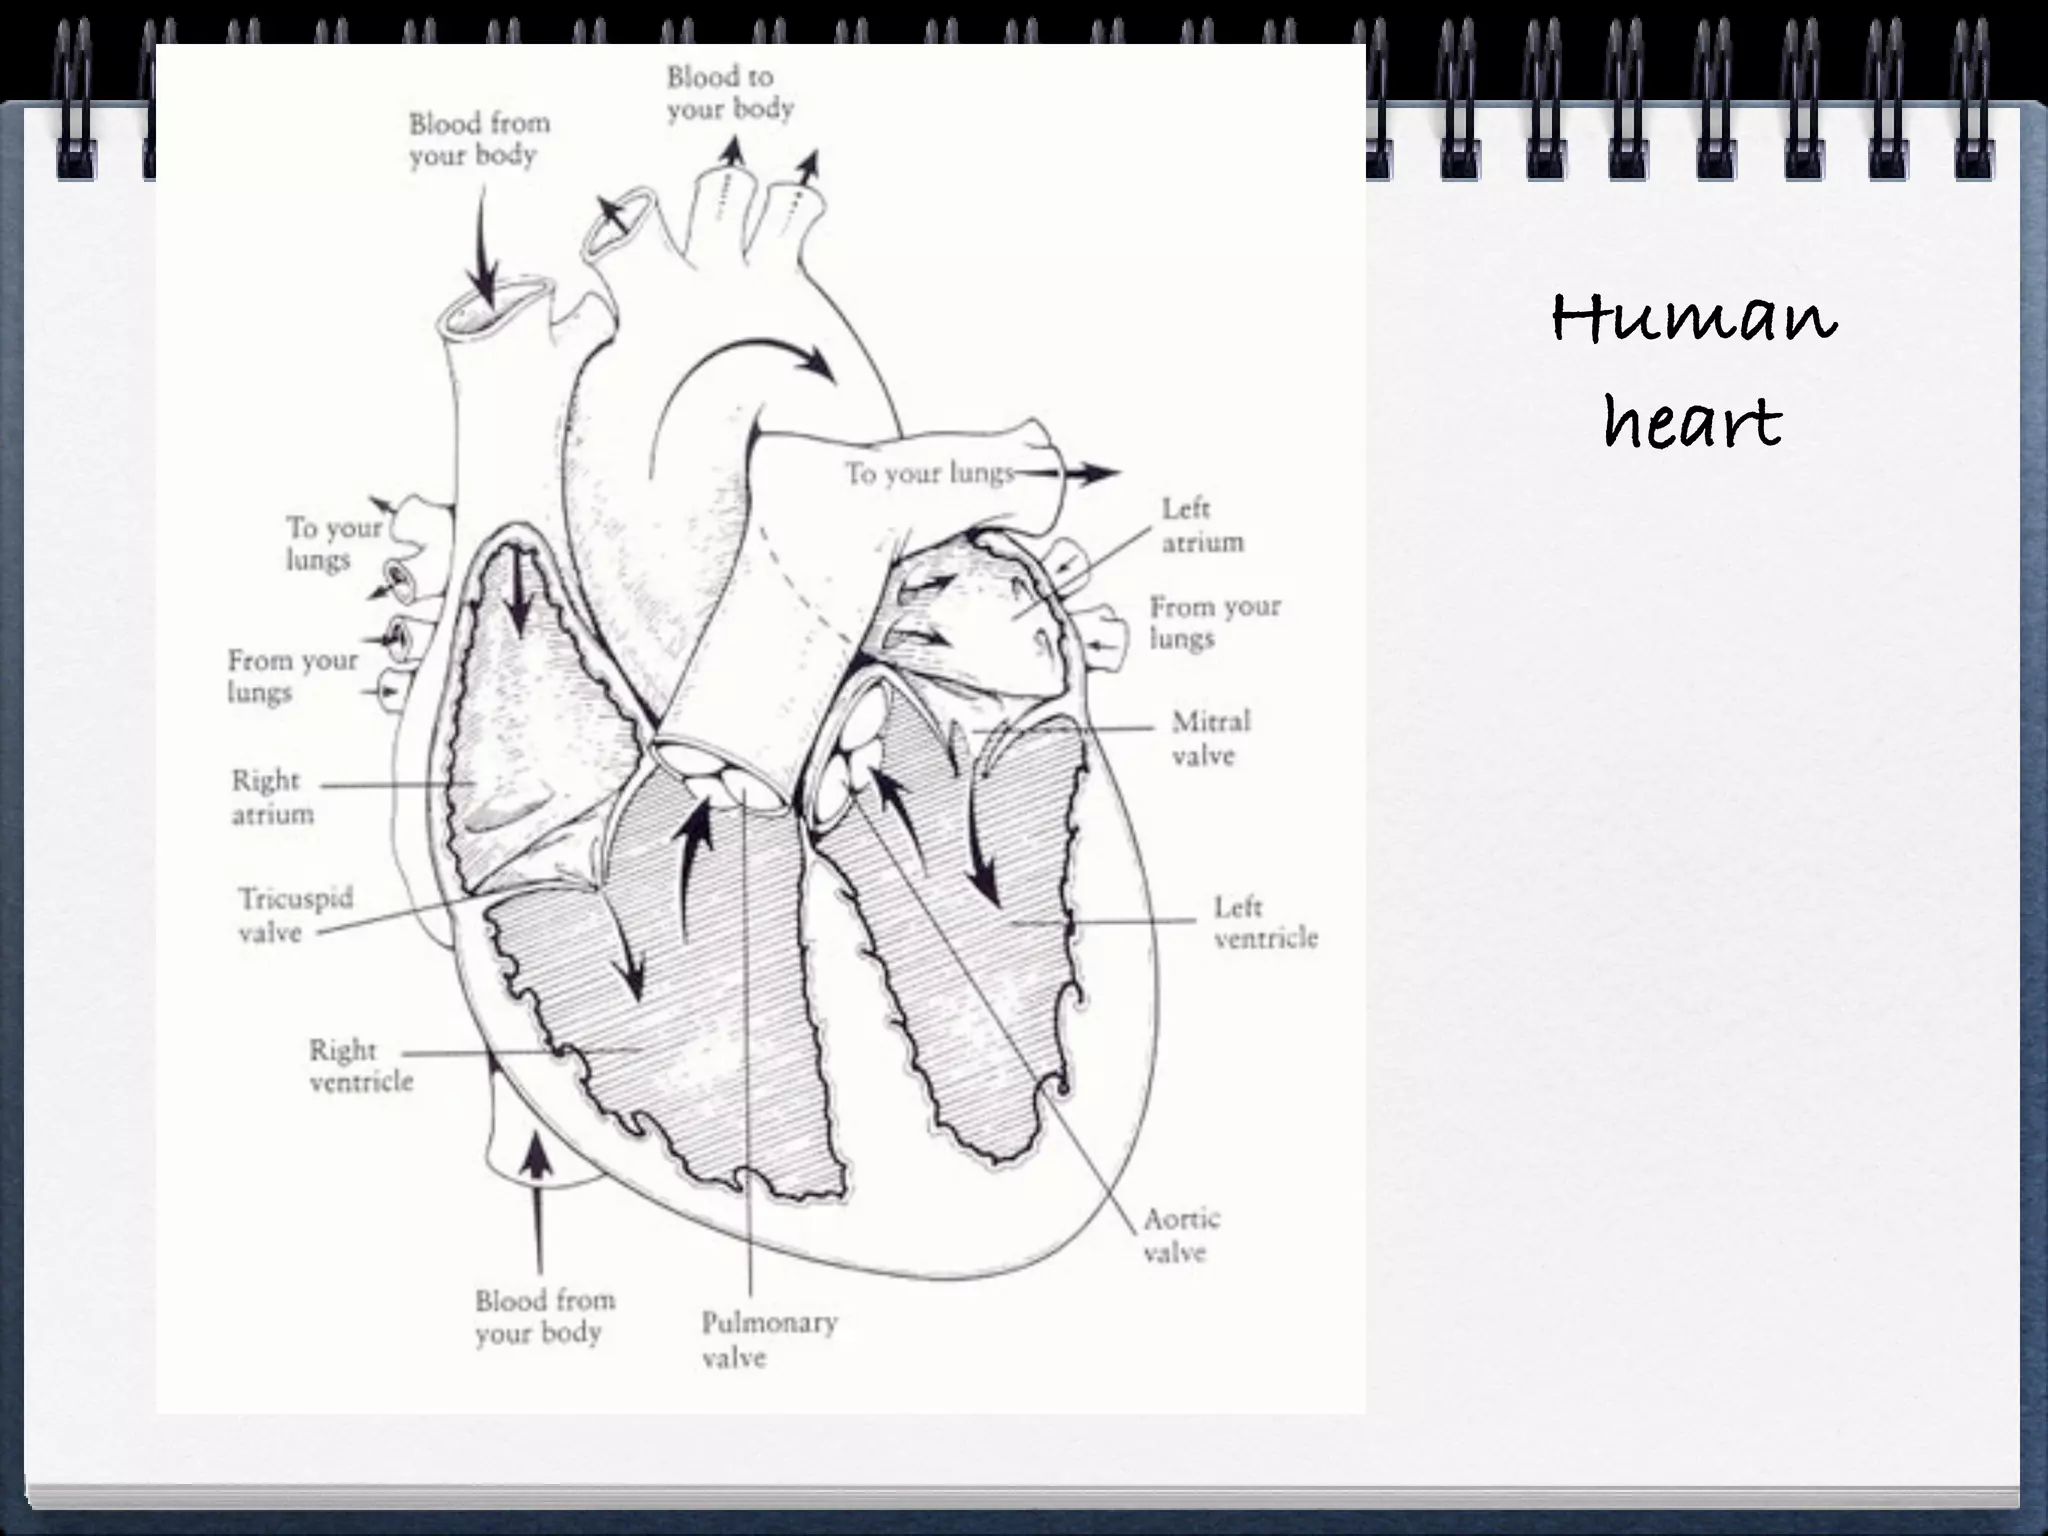 Blood to
your body
Blood from
your body
Human
heart
To your lungs
Left
atrium
To your
lungs
From your
lungs
From your
lungs
Mitral
valve
Right
atrium
Tricuspid
valve
Left
ventricle
Right
ventricle
Aortic
valve
Blood from
your body
Pulmonary
valve